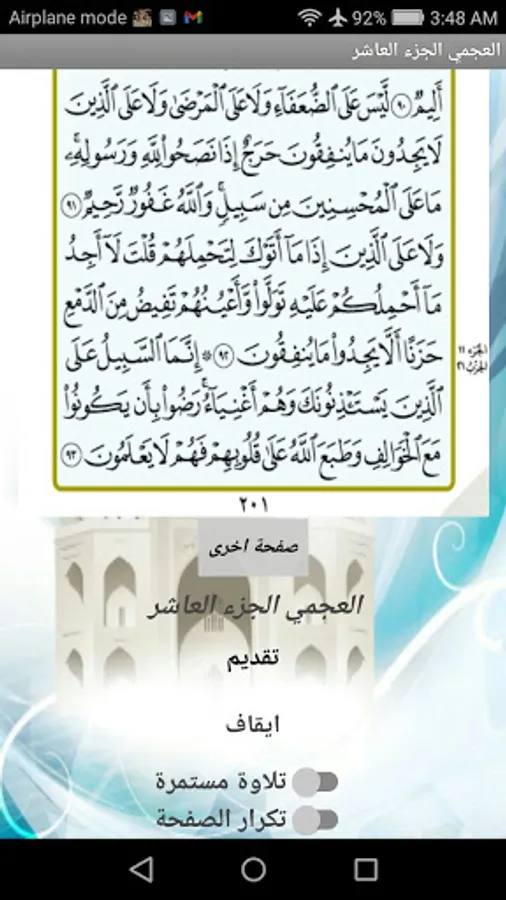 Airplane mode 92% 3:48 AM
العجمي الجزء العاشر
أَلِيمٌ ٩٠ لَّيْسَ عَلَى ٱلضُّعَفَآءِ وَلَا عَلَى ٱلْمَرْضَىٰ وَلَا عَلَى ٱلَّذِينَ
لَا يَجِدُونَ مَا يُنفِقُونَ حَرَجٌ إِذَا نَصَحُوا۟ لِلَّهِ وَرَسُولِهِۦ
مَا عَلَى ٱلْمُحْسِنِينَ مِن سَبِيلٍ وَٱللَّهُ غَفُورٌ رَّحِيمٌ ٩١
وَلَا عَلَى ٱلَّذِينَ إِذَا مَآ أَتَوْكَ لِتَحْمِلَهُمْ قُلْتَ لَآ أَجِدُ
مَآ أَحْمِلُكُمْ عَلَيْهِ تَوَلَّوا۟ وَّأَعْيُنُهُمْ تَفِيضُ مِنَ ٱلدَّمْعِ
حَزَنًا أَلَّا يَجِدُوا۟ مَا يُنفِقُونَ ٩٢ ۞ إِنَّمَا ٱلسَّبِيلُ عَلَى
ٱلَّذِينَ يَسْتَـْٔذِنُونَكَ وَهُمْ أَغْنِيَآءُ ۚ رَضُوا۟ بِأَن يَكُونُوا۟
مَعَ ٱلْخَوَالِفِ وَطَبَعَ ٱللَّهُ عَلَىٰ قُلُوبِهِمْ فَهُمْ لَا يَعْلَمُونَ ٩٣
الجزء ١١
الحزب ٢١
٢٠١
صفحة اخرى
العجمي الجزء العاشر
تقديم
ايقاف
تلاوة مستمرة
تكرار الصفحة